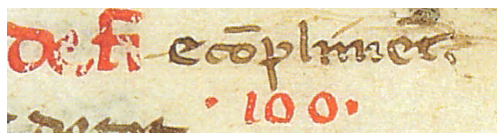 de fi e cōplimēt.
· 100 ·